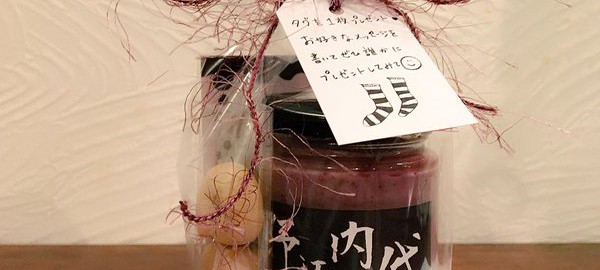 タグを1枚プレゼント
お好きなメッセージを
書いてぜひ誰かに
プレゼントしてみて
内代